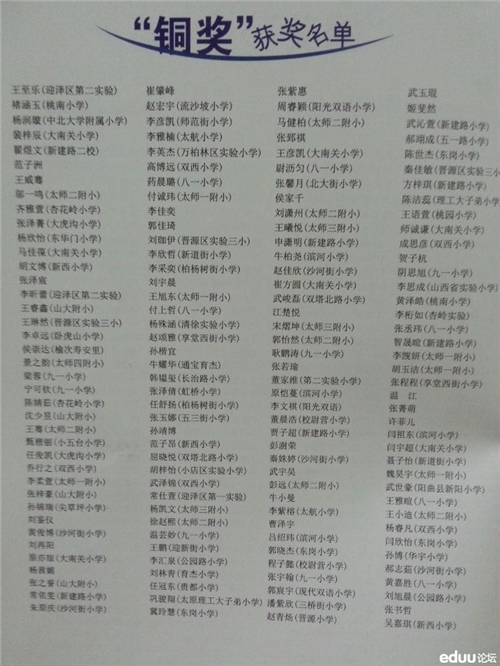 “铜奖”获奖名单
王至乐(迎泽区第二实验)
褚涵玉(桃南小学)
杨润璇(中北大学附属小学)
裴梓辰(大南关小学)
翟煜文(新建路二校)
范子洲
王威骞
邬一鸣(太师二附小)
齐雅萱(杏花岭小学)
张泽菁(大虎沟小学)
杨欣怡(东华门小学)
马佳葆(大南关小学)
胡文博(新西小学)
张泽宸
李昕蕾(迎泽区第二实验)
王睿鑫(山大附小)
王琳然(晋源区实验三小)
李卓远(卧虎山小学)
侯崇达(榆次寿安里)
景之韵(太师四附小)
梁蓉(九一小学)
宁可钦(九一小学)
陈婧茹(杏花岭小学)
沈少昱(山大附小)
王骞(太师二附小)
甄楷骃(小五台小学)
任俊凯(大虎沟小学)
乔行之(双西小学)
李柔萱(太师一附小)
张梓豪(山大附小)
孙锦瑞(尖草坪小学)
刘鉴仪
黄俊博(沙河街小学)
刘再阳
张之誉(山大附小)
常依雯(新建路小学)
朱宸庆(沙河街小学)
崔肇峰
赵宏宇(流沙坡小学)
李彦凯(师范街小学)
李雅楠(太航小学)
李英杰(万柏林区实验小学)
高博远(双西小学)
药晨璐(八一小学)
付诚玮(太师一附小)
李佳奕
郭佳琦
刘珈伊(晋源区实验三小)
李欣哲(新道街小学)
李采奕(柏杨树街小学)
刘宇晨
王旭东(太师一附小)
付上哲(八一小学)
杨殊涵(清徐实验小学)
赵颂雅(享堂西街小学)
孙楷宜
牛耀华(通宝育杰)
韩韫玺(长治路小学)
张泽倩(虹桥小学)
任舒扬(柏杨树街小学)
张玉娜(五三街小学)
孙靖博
范子昂(新西小学)
屈晓悦(双塔北路小学)
胡梓怡(小店区实验小学)
武泽锦(双西小学)
常仕萱(迎泽区第一实验)
杨凯文(太师三附小)
徐赵熙(太师二附小)
温芸妙(九一小学)
王鹏(迎新街小学)
李汇泉(公园路小学)
刘林青(育杰小学)
任冠东(贵都小学)
巩骏翔(太原理工大子弟小学)
冀玲慧(东岗小学)
张紫惠
周睿颖(阳光双语小学)
马健柏(太师二附小)
张郅祺
王彦凯(大南关小学)
尉沥匀(八一小学)
张馨月(北大街小学)
侯家千
刘潇州(太师二附小)
王曦悦(太师三附小)
申潇明(新建路小学)
牛柏尧(滨河小学)
赵佳欣(沙河街小学)
崔方圆(大南关小学)
武峻磊(双塔北路小学)
江楚悦
宋熠坤(太师三附小)
郭怡然(太师二附小)
耿鹏涛(九一小学)
张若瑜
董家维(第二实验小学)
原恺蔓(滨河小学)
李文祺(阳光双语)
董晨浩(校尉营小学)
贾子超(新建路小学)
彭澍荣
秦姝婷(沙河街小学)
武宇昊
彭远(太师二附小)
牛小曼
李紫榕(太航小学)
曹泽宇
吕绍玮(滨河小学)
郭晓杰(东岗小学)
程子懿(校尉营小学)
张宇翰(九一小学)
郭宸宇(现代双语小学)
潘紫欣(三桥街小学)
赵青炀(晋源小学)
武玉琨
姬斐然
武沁萱(新建路小学)
郝翊成(五一路小学)
陈世杰(东岗小学)
秦佳敏(晋源区实验三小)
方梓琪(新建路小学)
陈洁蕊(理工大子弟小学)
王语萱(桃园小学)
师诚谦(大南关小学)
成思彦(双西小学)
贺子杭
阴思旭(九一小学)
李思成(山西省实验小学)
黄泽皓(桃南小学)
李桁如(杏岭实验)
张丞玮(八一小学)
智晟暄(新建路小学)
李馥妍(太师一附小)
胡玉洁(太师一附小)
张程程(享堂西街小学)
温江
张菁萌
许菲儿
闫祖东(滨河小学)
闫宇超(大南关小学)
聂子怡(新道街小学)
魏昊宇(太师一附小)
武世豪(阳曲县新阳小学)
王雅暄(八一小学)
王小迪(太师二附小)
杨睿凡(双西小学)
闫欣怡(东岗小学)
孙博(华宇小学)
郝志茹(沙河街小学)
黄嘉胜(八一小学)
刘旭晨(公园路小学)
张书哲
吴嘉琪(新西小学)
eduu论坛